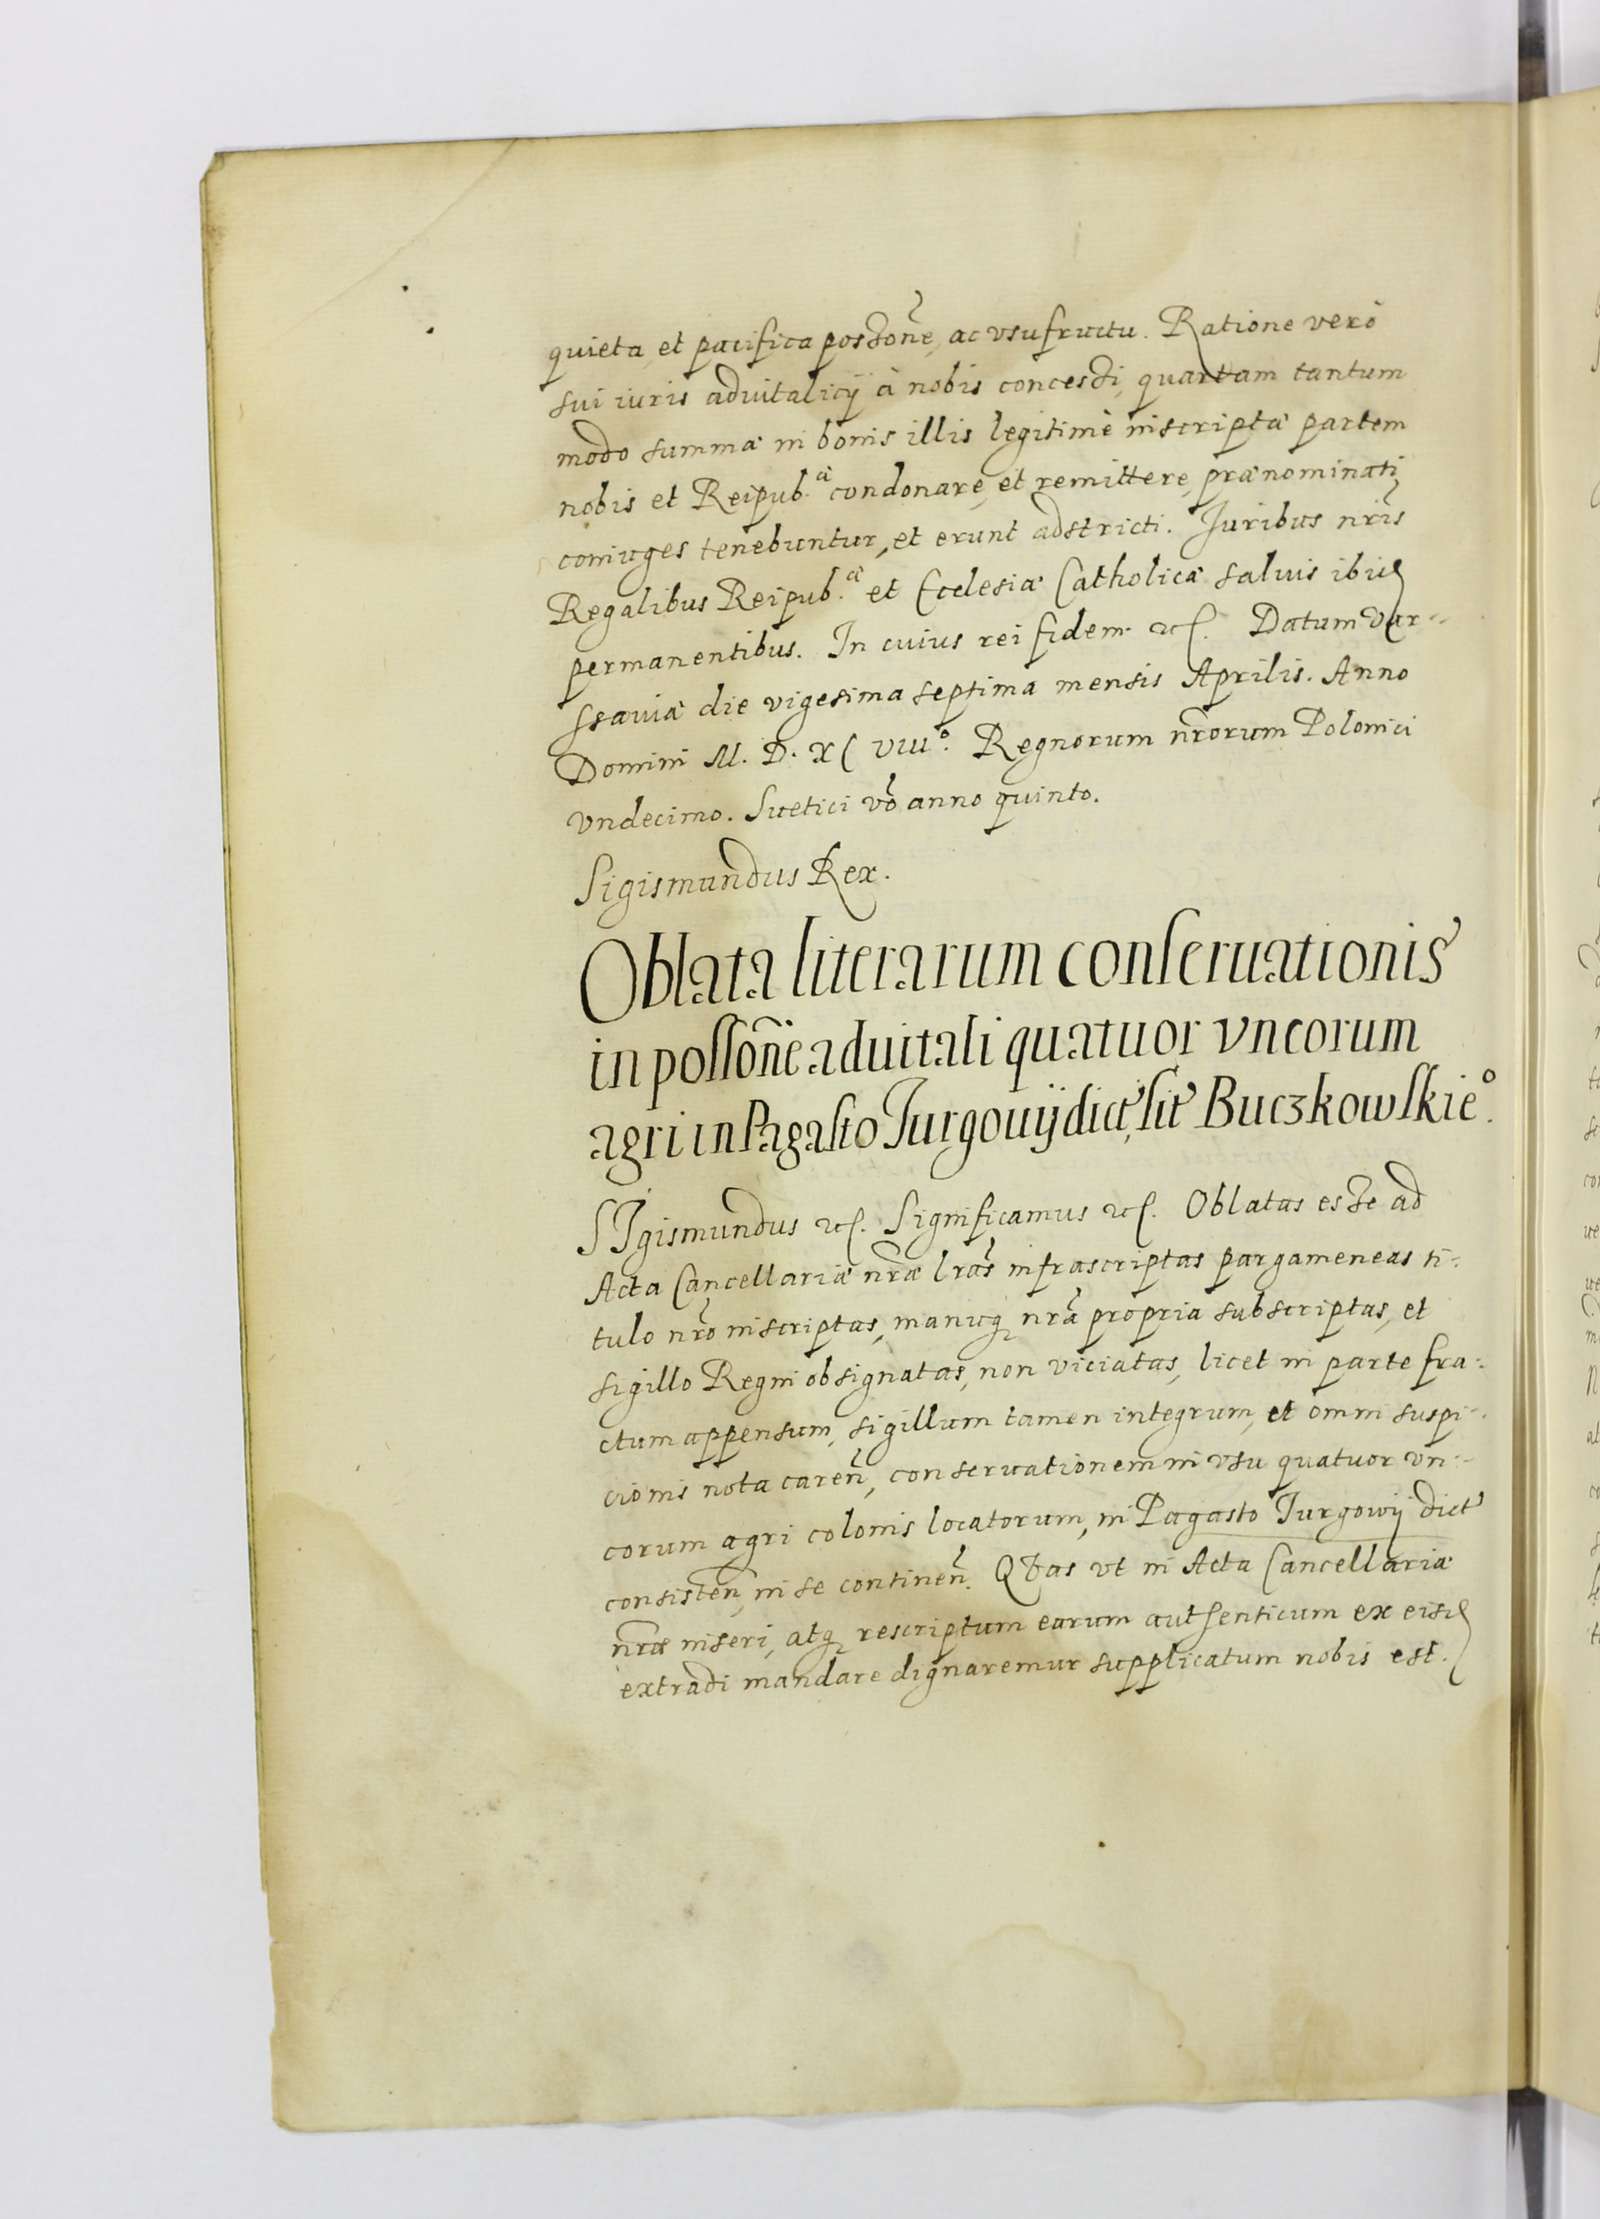 quieta, et pacifica possõne, ac vsufructu. Ratione verò
sui iuris aduitalicÿ à nobis concessi, quartam tantum
modo summæ in bonis illis legitimè inscriptæ partem
nobis et Reipub.cæ condonare, et remittere, prænominati
coniuges tenebuntur, et erunt adstricti. Iuribus nr̃is
Regalibus Reipub.cæ et Ecclesiæ Catholicæ saluis ibid
permanentibus. In cuius rei fidem etc. Datum Var-
ssauiæ die vigesima septima mensis Aprilis. Anno
Domini M. D. XC VIIIº. Regnorum nr̃orum Polonici
vndecimo. Suetici võ anno quinto.
Sigismundus Rex.
Oblata literarum conseruationis
in possõne aduitali quatuor vncorum
agri in Pagasto Iurgouÿ dict, sit Buczkowskieº.
SIgismundus etc. Significamus etc. Oblatas esse ad
Acta Cancellariæ nr̃æ lr̃as infrascriptas pargameneas ti-
tulo nr̃o inscriptas, manuq nr̃a propria subscriptas, et
sigillo Regni obsignatas, non viciatas, licet in parte fra-
ctum appensum, sigillum tamen integrum, et omni suspi-
cionis nota careñ, conseruationem in vsu quatuor vn-
corum agri colonis locatorum, in Pagasto Iurgowÿ dict
consisteñ, in se contineñ. Qũas vt in Acta Cancellariæ
nr̃æ inseri, atq rescriptum earum authenticum ex eisd
extradi mandare dignaremur supplicatum nobis est.